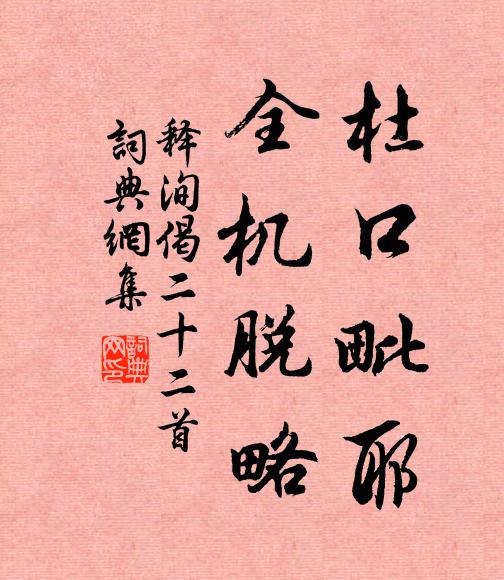 杜口毗耶
全机脱略
释洵偈二十二首
詞典網集
詞典网印